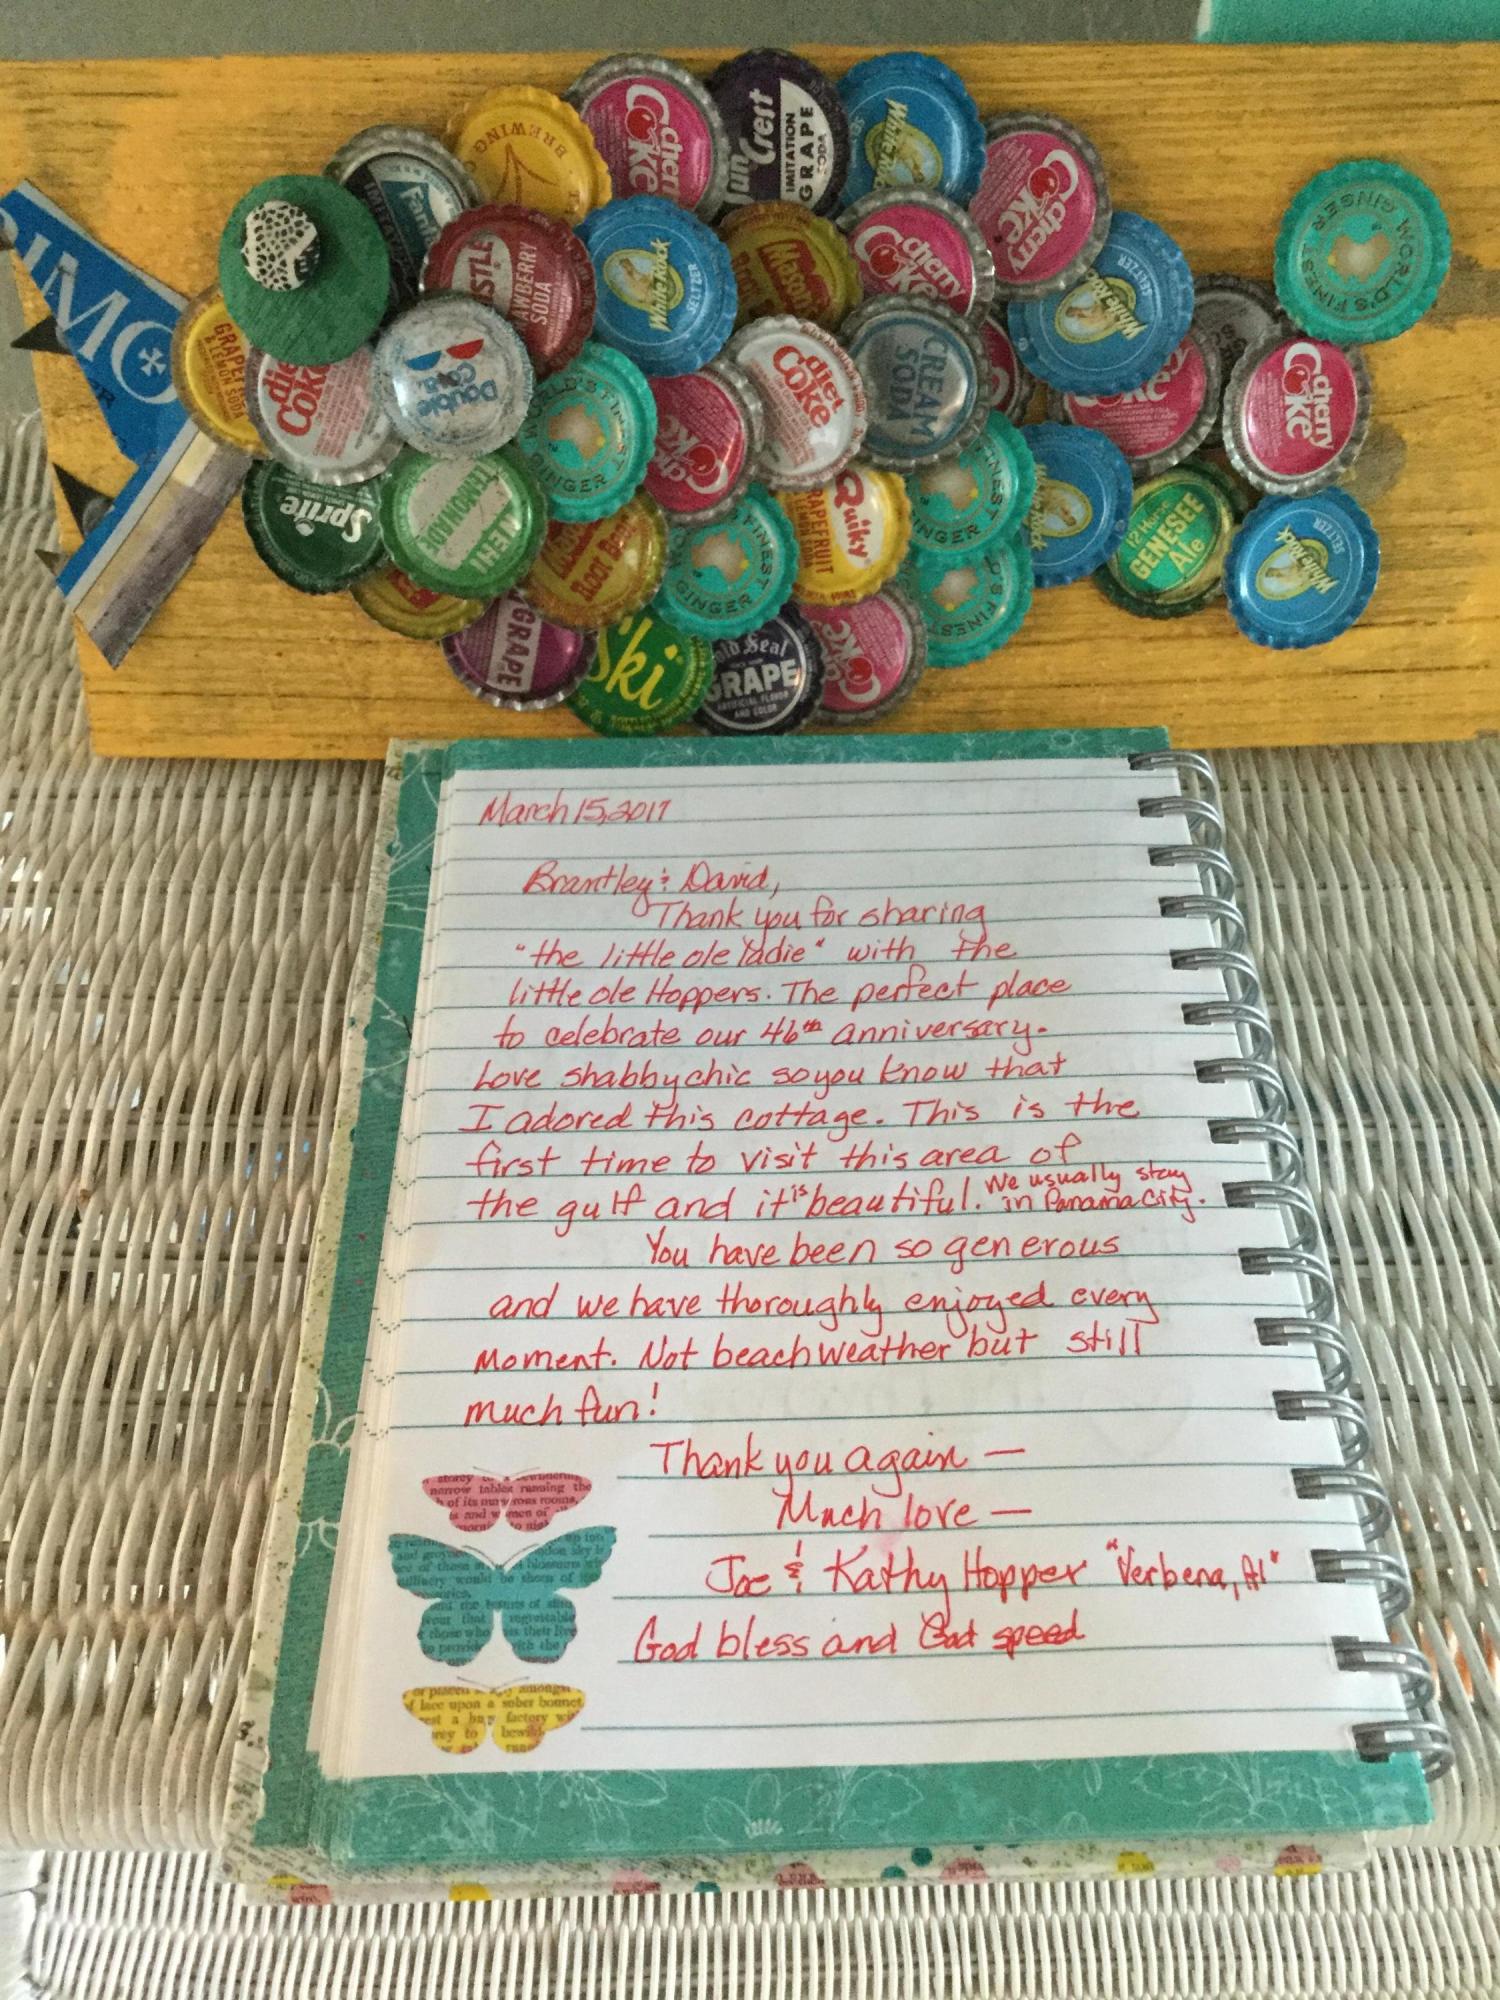 BREWING
cherry
Coke
Sun
Crest
IMITATION
GRAPE
SODA
White Rock
cherry
Coke
STRAWBERRY
SODA
White Rock
SELTZER
cherry
Coke
White Rock
SELTZER
WORLD'S FINEST
GINGER
GRAPEFRUIT
& LEMON SODA
diet
Coke
Double
Cola
WORLD'S FINEST
GINGER
Coke
diet
Coke
CREAM
SODA
Coke
cherry
Coke
Sprite
LEMONADE
Root Beer
GINGER
Quiky
GRAPEFRUIT
GINGER
White Rock
12 Horse
GENESEE
Ale
White Rock
SELTZER
GRAPE
Ski
Gold Seal
GRAPE
ARTIFICIAL FLAVOR
AND COLOR
Coke
March 15, 2017
Brantley & David,
Thank you for sharing
"the little ole ladie" with the
little ole Hoppers. The perfect place
to celebrate our 46th anniversary.
Love shabby chic so you know that
I adored this cottage. This is the
first time to visit this area of
the gulf and it is beautiful. We usually stay
in Panama City.
You have been so generous
and we have thoroughly enjoyed every
moment. Not beach weather but still
much fun!
Thank you again —
Much love —
Joe & Kathy Hopper "Verbena, Al"
God bless and God speed
narrow tables running the
of its numerous rooms,
and women of